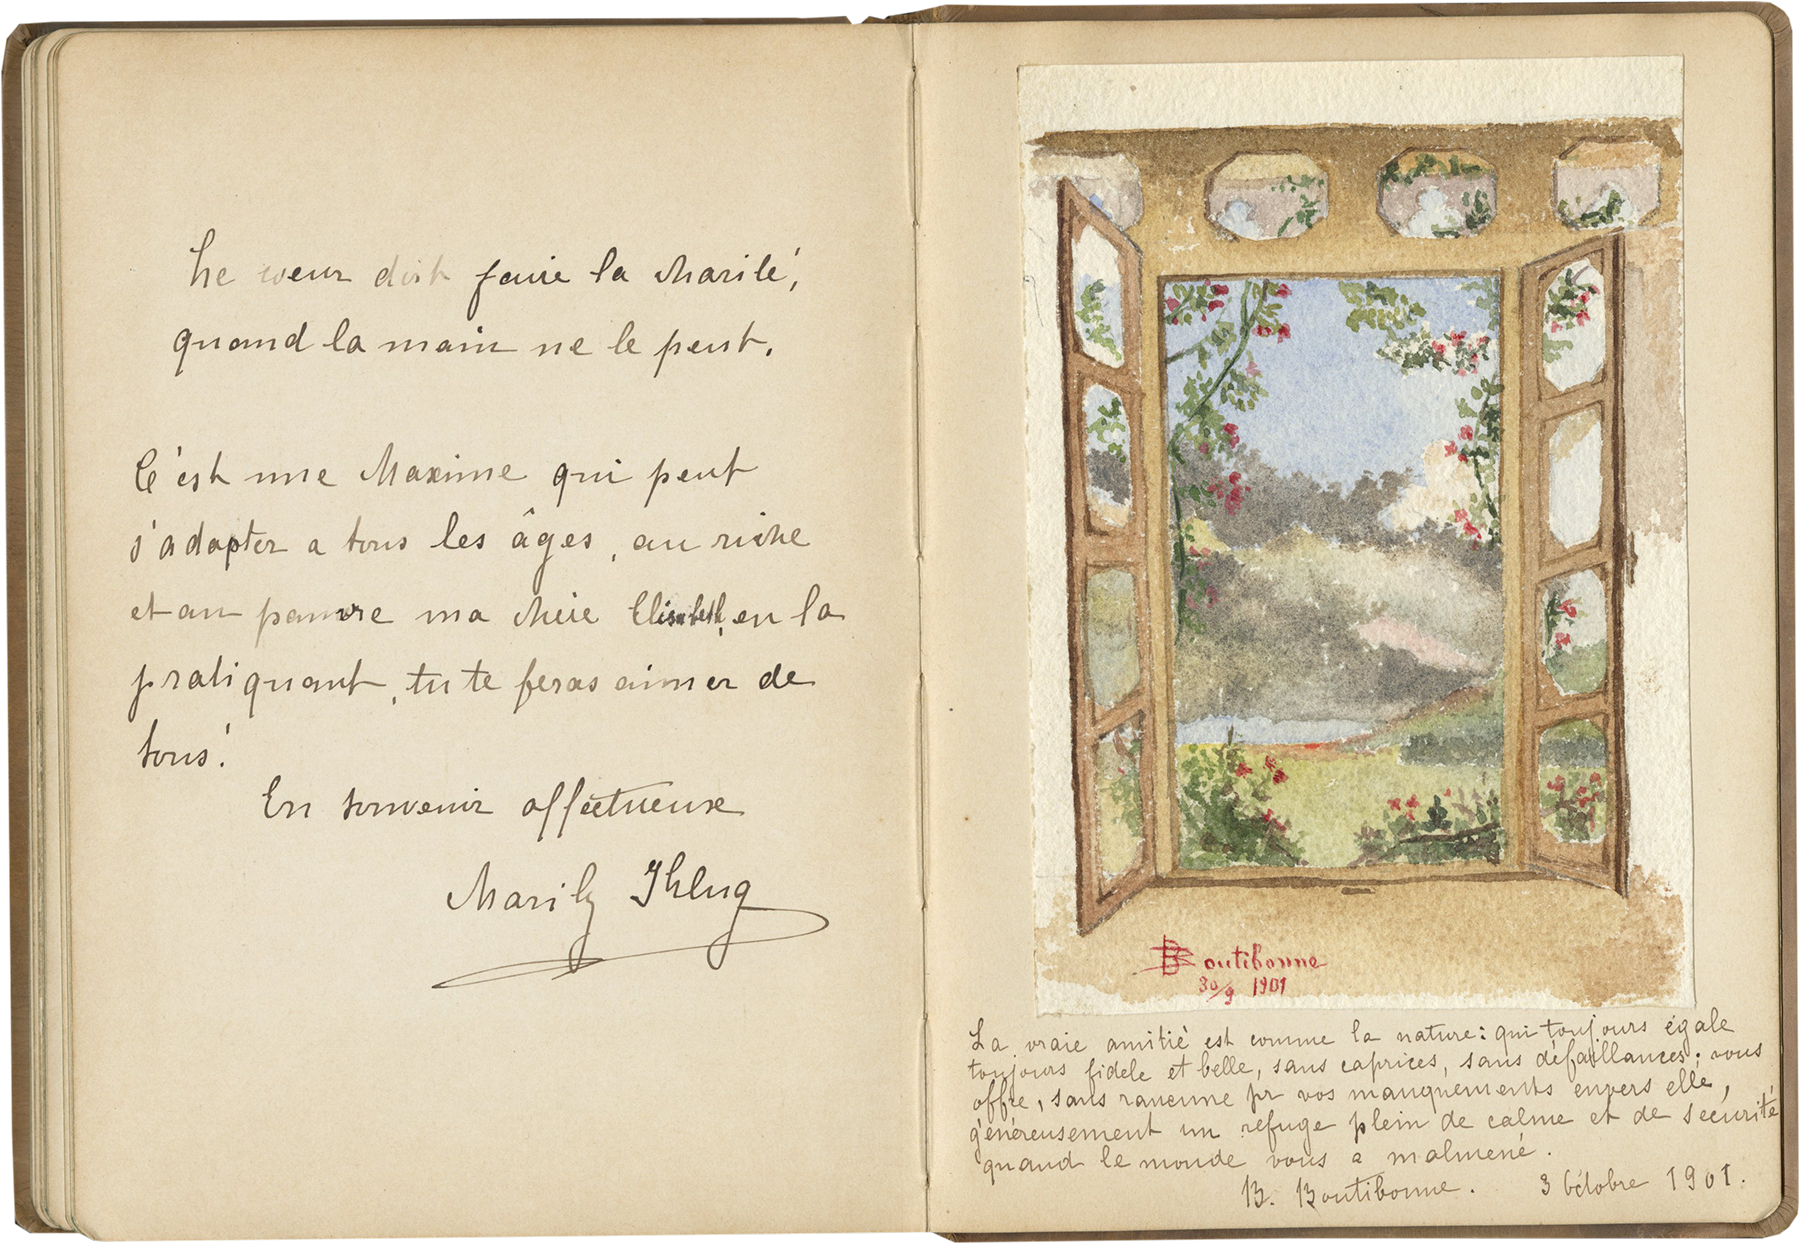 Le coeur doit faire la charité,
quand la main ne le peut.
C'est une Maxime qui peut
s'adapter a tous les âges, au riche
et au pauvre ma chère Elisabeth, en la
pratiquant, tu te feras aimer de
tous!
En souvenir affectueux
Marily
Boutibonne
30/9 1901
La vraie amitié est comme la nature: qui toujours égale
toujours fidèle et belle, sans caprices, sans défaillances; vous
offre, sans rancune pr vos manquements envers elle,
généreusement un refuge plein de calme et de sécurité
quand le monde vous a malmené.
B. Boutibonne. 3 Octobre 1901.